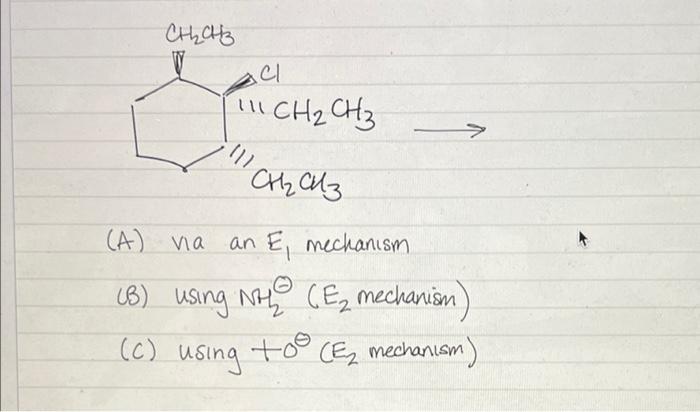 CH₂CH₃
Cl
CH₂CH₃
CH₂CH₃
(A) via an E₁ mechanism
(B) using NH₂⊖ (E₂ mechanism)
(C) using +O⊖ (E₂ mechanism)